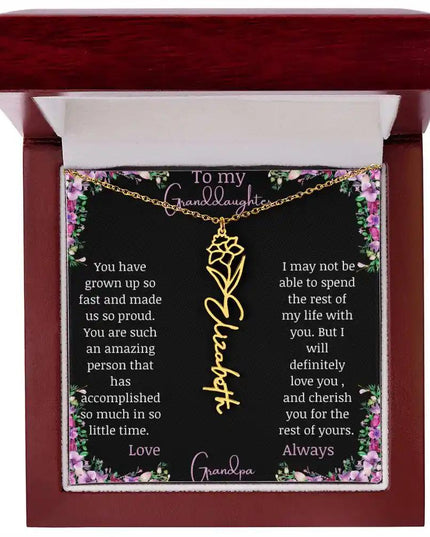 To my
Granddaughter
You have
grown up so
fast and made
us so proud.
You are such
an amazing
person that
has
accomplished
so much in so
little time.
Elizabeth
I may not be
able to spend
the rest of
my life with
you. But I
will
definitely
love you ,
and cherish
you for the
rest of yours.
Love
Always
Grandpa